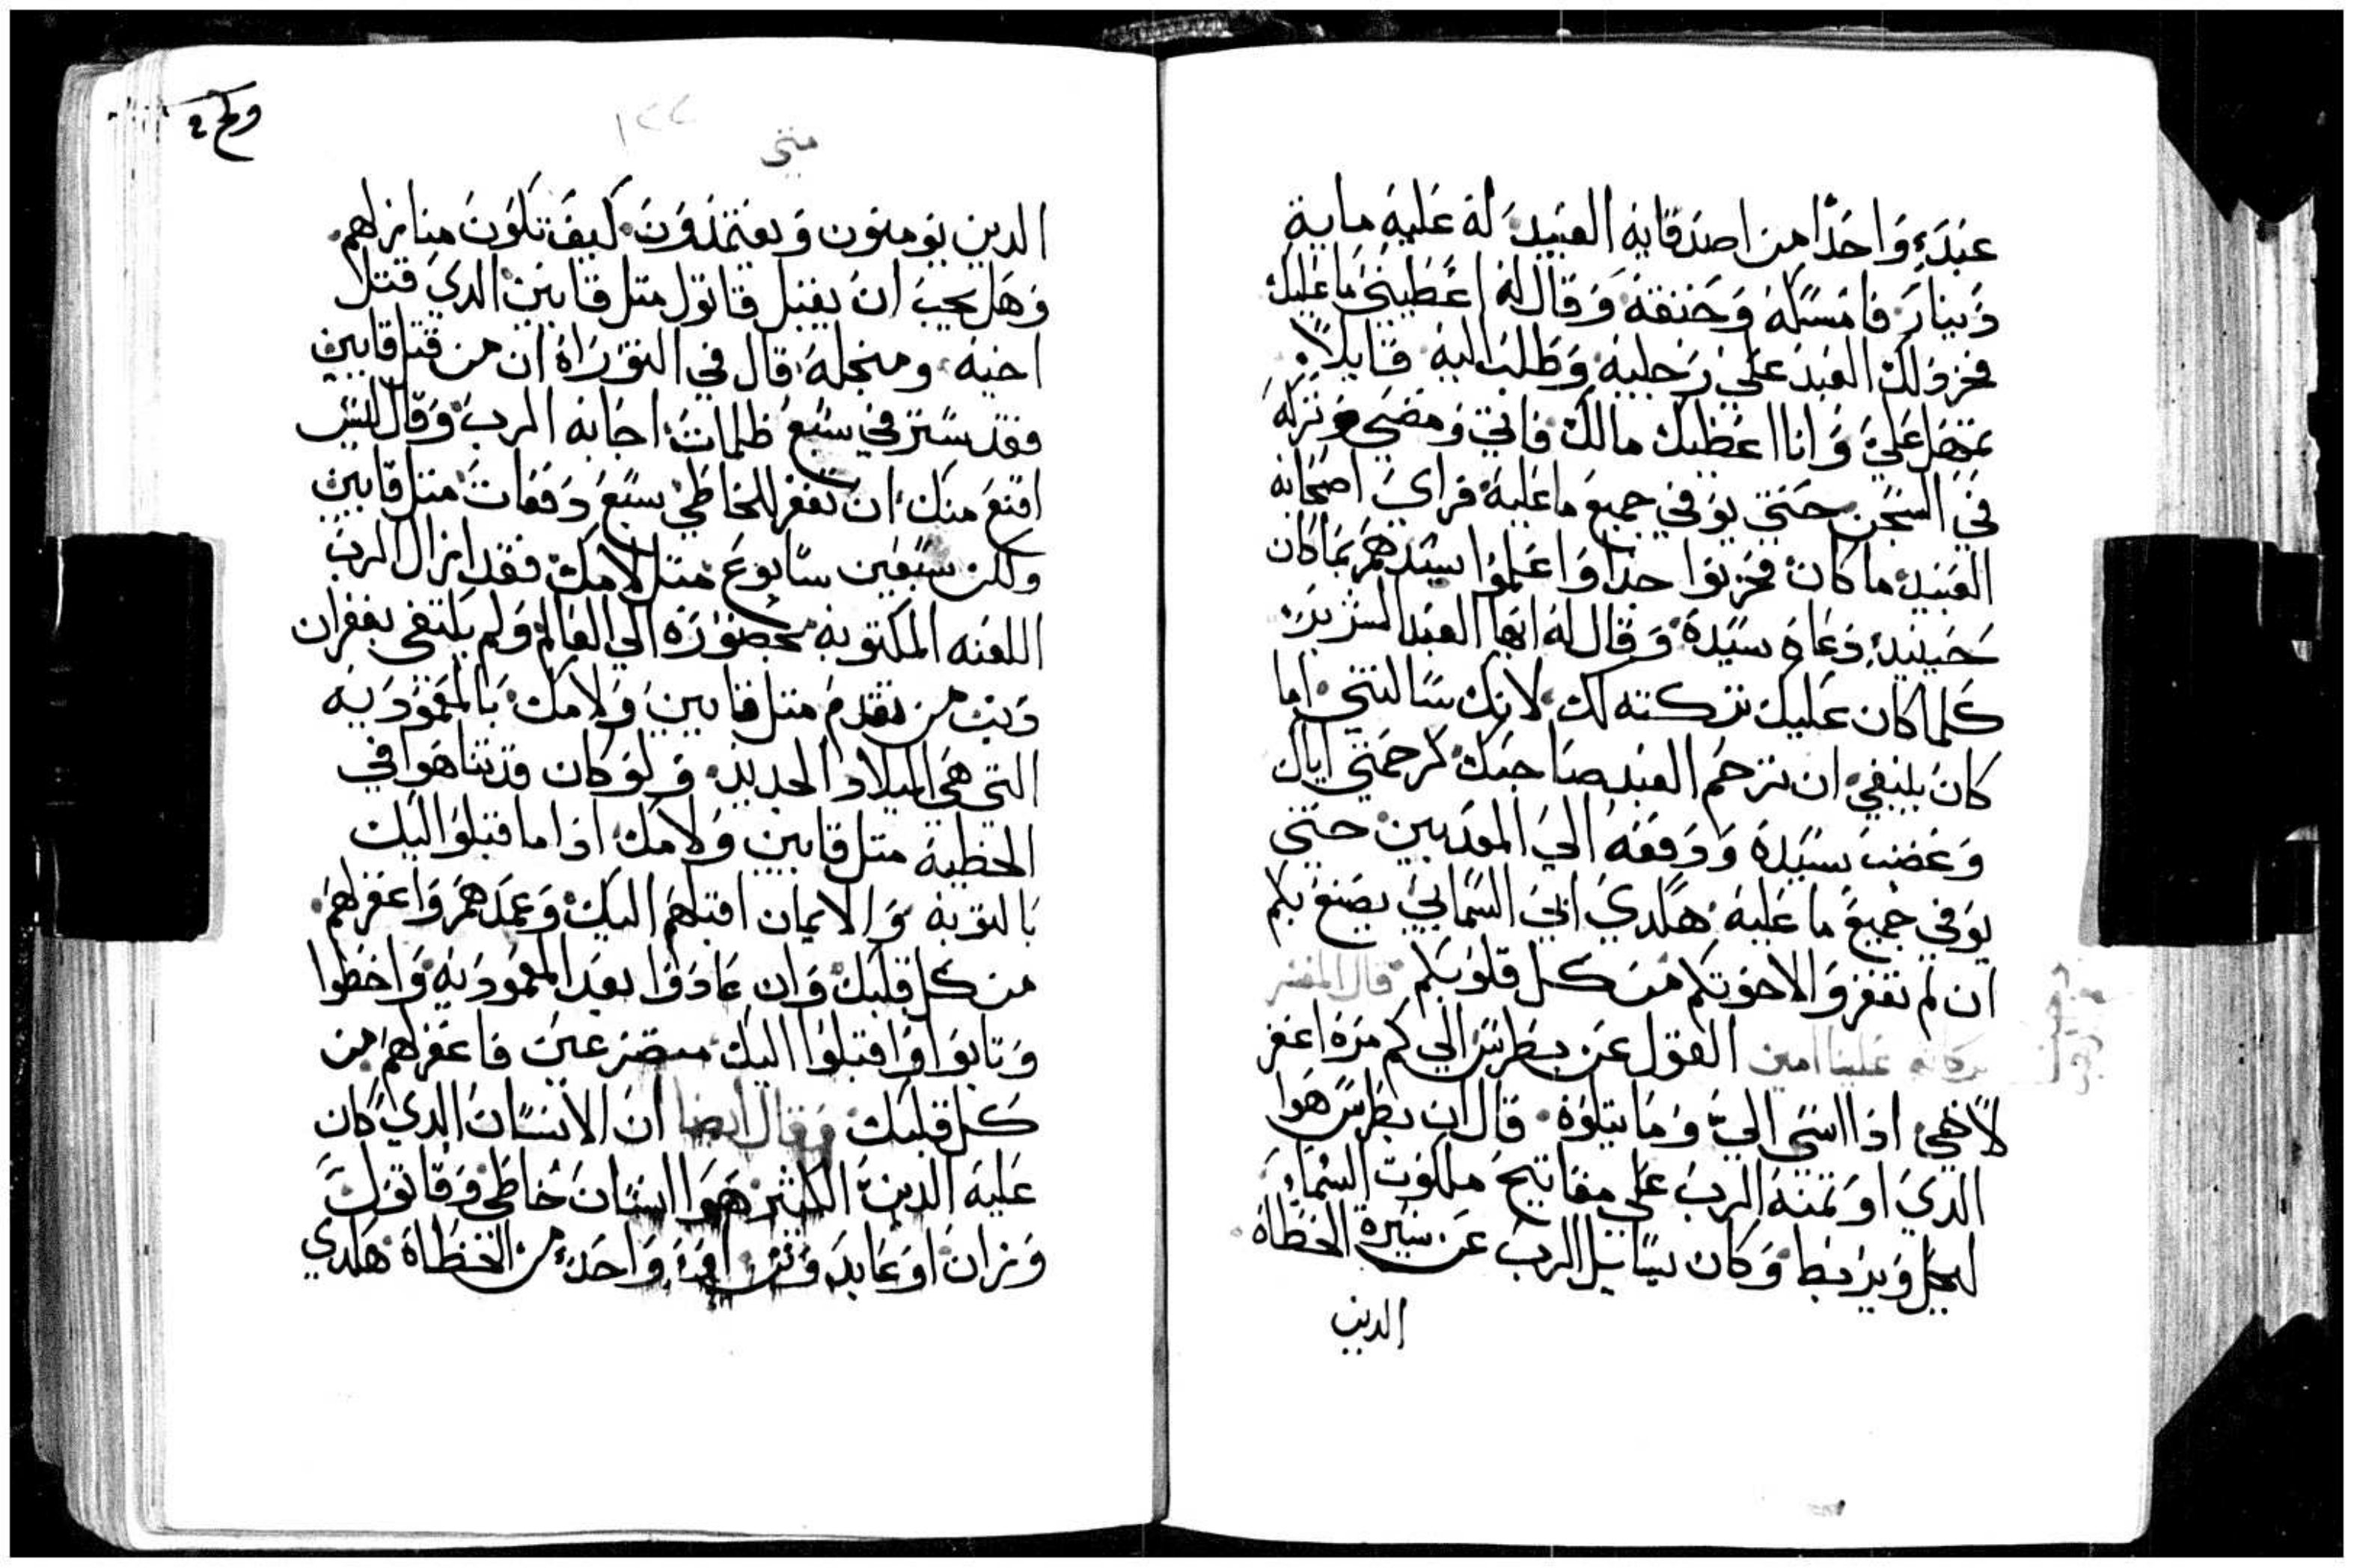 عبدء واحدا من اصدقايه العبيد له عليه ماية
دينار فامسكه وخنقه وقال له اعطيني ما عليك
فخر ذلك العبد علي رجليه وطلب اليه قايلا
تمهل علي وانا اعطيك مالك فابي ومضي وتركه
في السجن حتي يوفي جميع ما عليه فراي اصحابه
العبيد ما كان فحزنوا جدا واعلموا سيدهم بما كان
حينيد دعاه سيده وقال له ايها العبد الشرير
كلما كان عليك تركته لك لانك سالتني اما
كان ينبغي ان ترحم العبد صاحبك كرحمتي اياك
وغضب سيده ودفعه الي المعدبين حتي
يوفي جميع ما عليه هكدي ابي السمايي يصنع بكم
ان لم تغفروا لاخوتكم من كل قلوبكم قال المفسر
بركاته علينا امين القول عن بطرس الي كم مرة اغفر
لاخي ادا اسي الي وما يتلوه قال ان بطرس هوا
الدي اوتمنه الرب علي مفاتيح ملكوت السماء
ليحل ويربط وكان يسايل الرب عن سيرة الخطاة
الدين
متي
١٢٢
الدين يومنون ويعتمدون كيف تكون منازلهم
وهل يجب ان يقبل قاتول متل قايين الدي قتل
اخيه ومنجله قال في التوراة ان من قتل قايين
فقد ستر في سبع ظلمات اجابه الرب وقال ليس
اقنع منك ان تغفر للخاطي سبع دفعات متل قايين
ولكن سبعين سابوع متل لامك فقد ازال الرب
اللعنه المكتوبه بحضوره الي العالم ولم يكتفي بغفران
دنب من تقدم متل قايين ولامك بالمعموديه
التي هي الميلاد الجديد ولو كان قد تناهوا في
الخطية متل قايين ولامك ادا ما قبلوا اليك
بالتوبه والايمان اقبلهم اليك وعمدهم واغفر لهم
من كل قلبك وان عادوا بعد المعموديه واخطوا
وتابوا واقبلوا اليك متضرعين فاغفر لهم من
كل قلبك وقال ايضا ان الانسان الدي كان
عليه الدين الكتير هوا انسان خاطي وقاتول
وزان او عابد وتن واحد من الخطاة هكدي